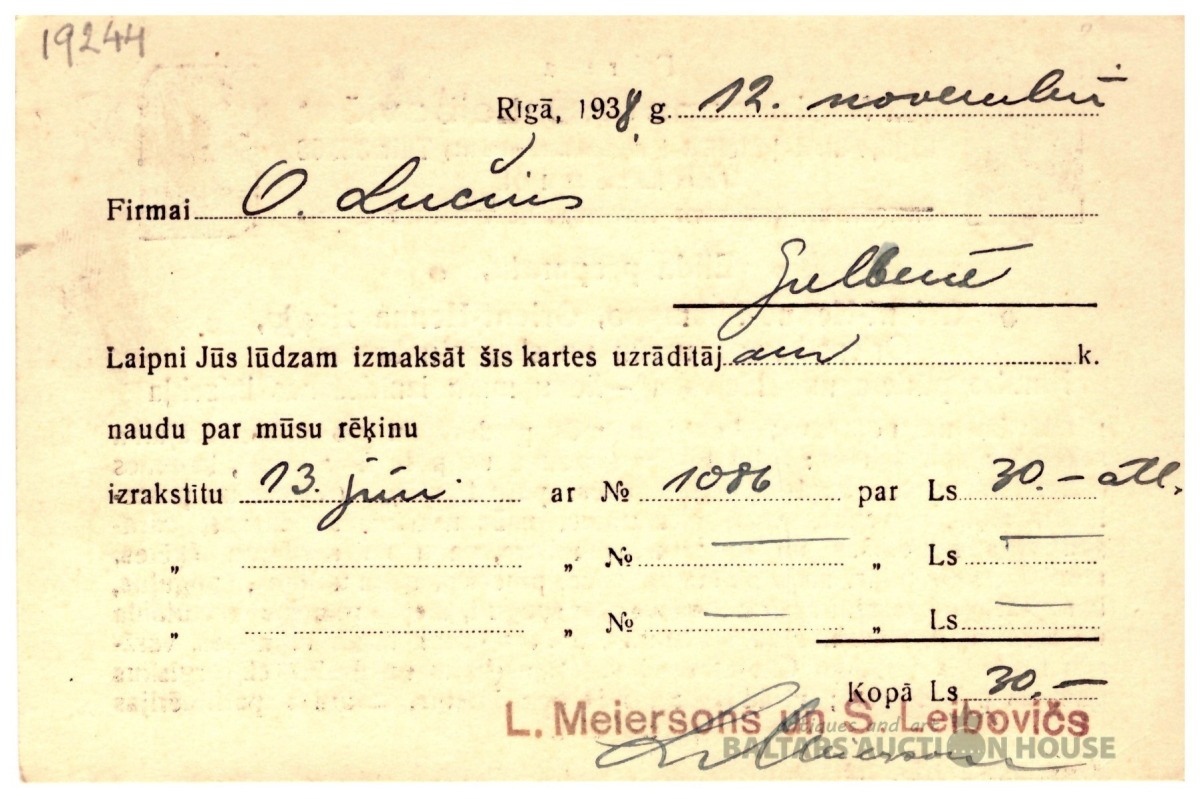 19244
Rīgā, 1938 g. 12. novembrī
Firmai O. Lucins
Gulbenē
Laipni Jūs lūdzam izmaksāt šīs kartes uzrādītāj am k.
naudu par mūsu rēķinu
izrakstītu 13. jūn. ar № 1086 par Ls 30.– atl.
„ „ № — „ Ls —
„ „ № — „ Ls —
Kopā Ls 30.–
L. Meiersons un S. Leibovičs
antiques and art
BALTARS AUCTION HOUSE